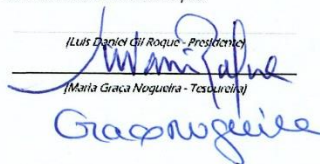 (Luis Daniel Gil Roque - Presidente)
(Maria Graça Nogueira - Tesoureira)
Graça Nogueira